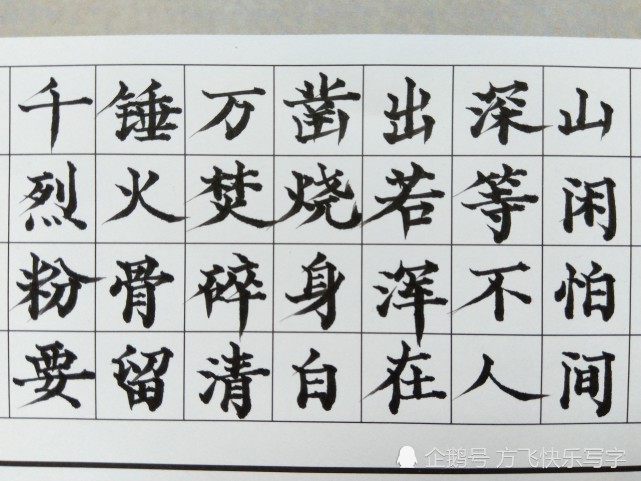 千锤万凿出深山
烈火焚烧若等闲
粉骨碎身浑不怕
要留清白在人间
企鹅号 方飞快乐写字